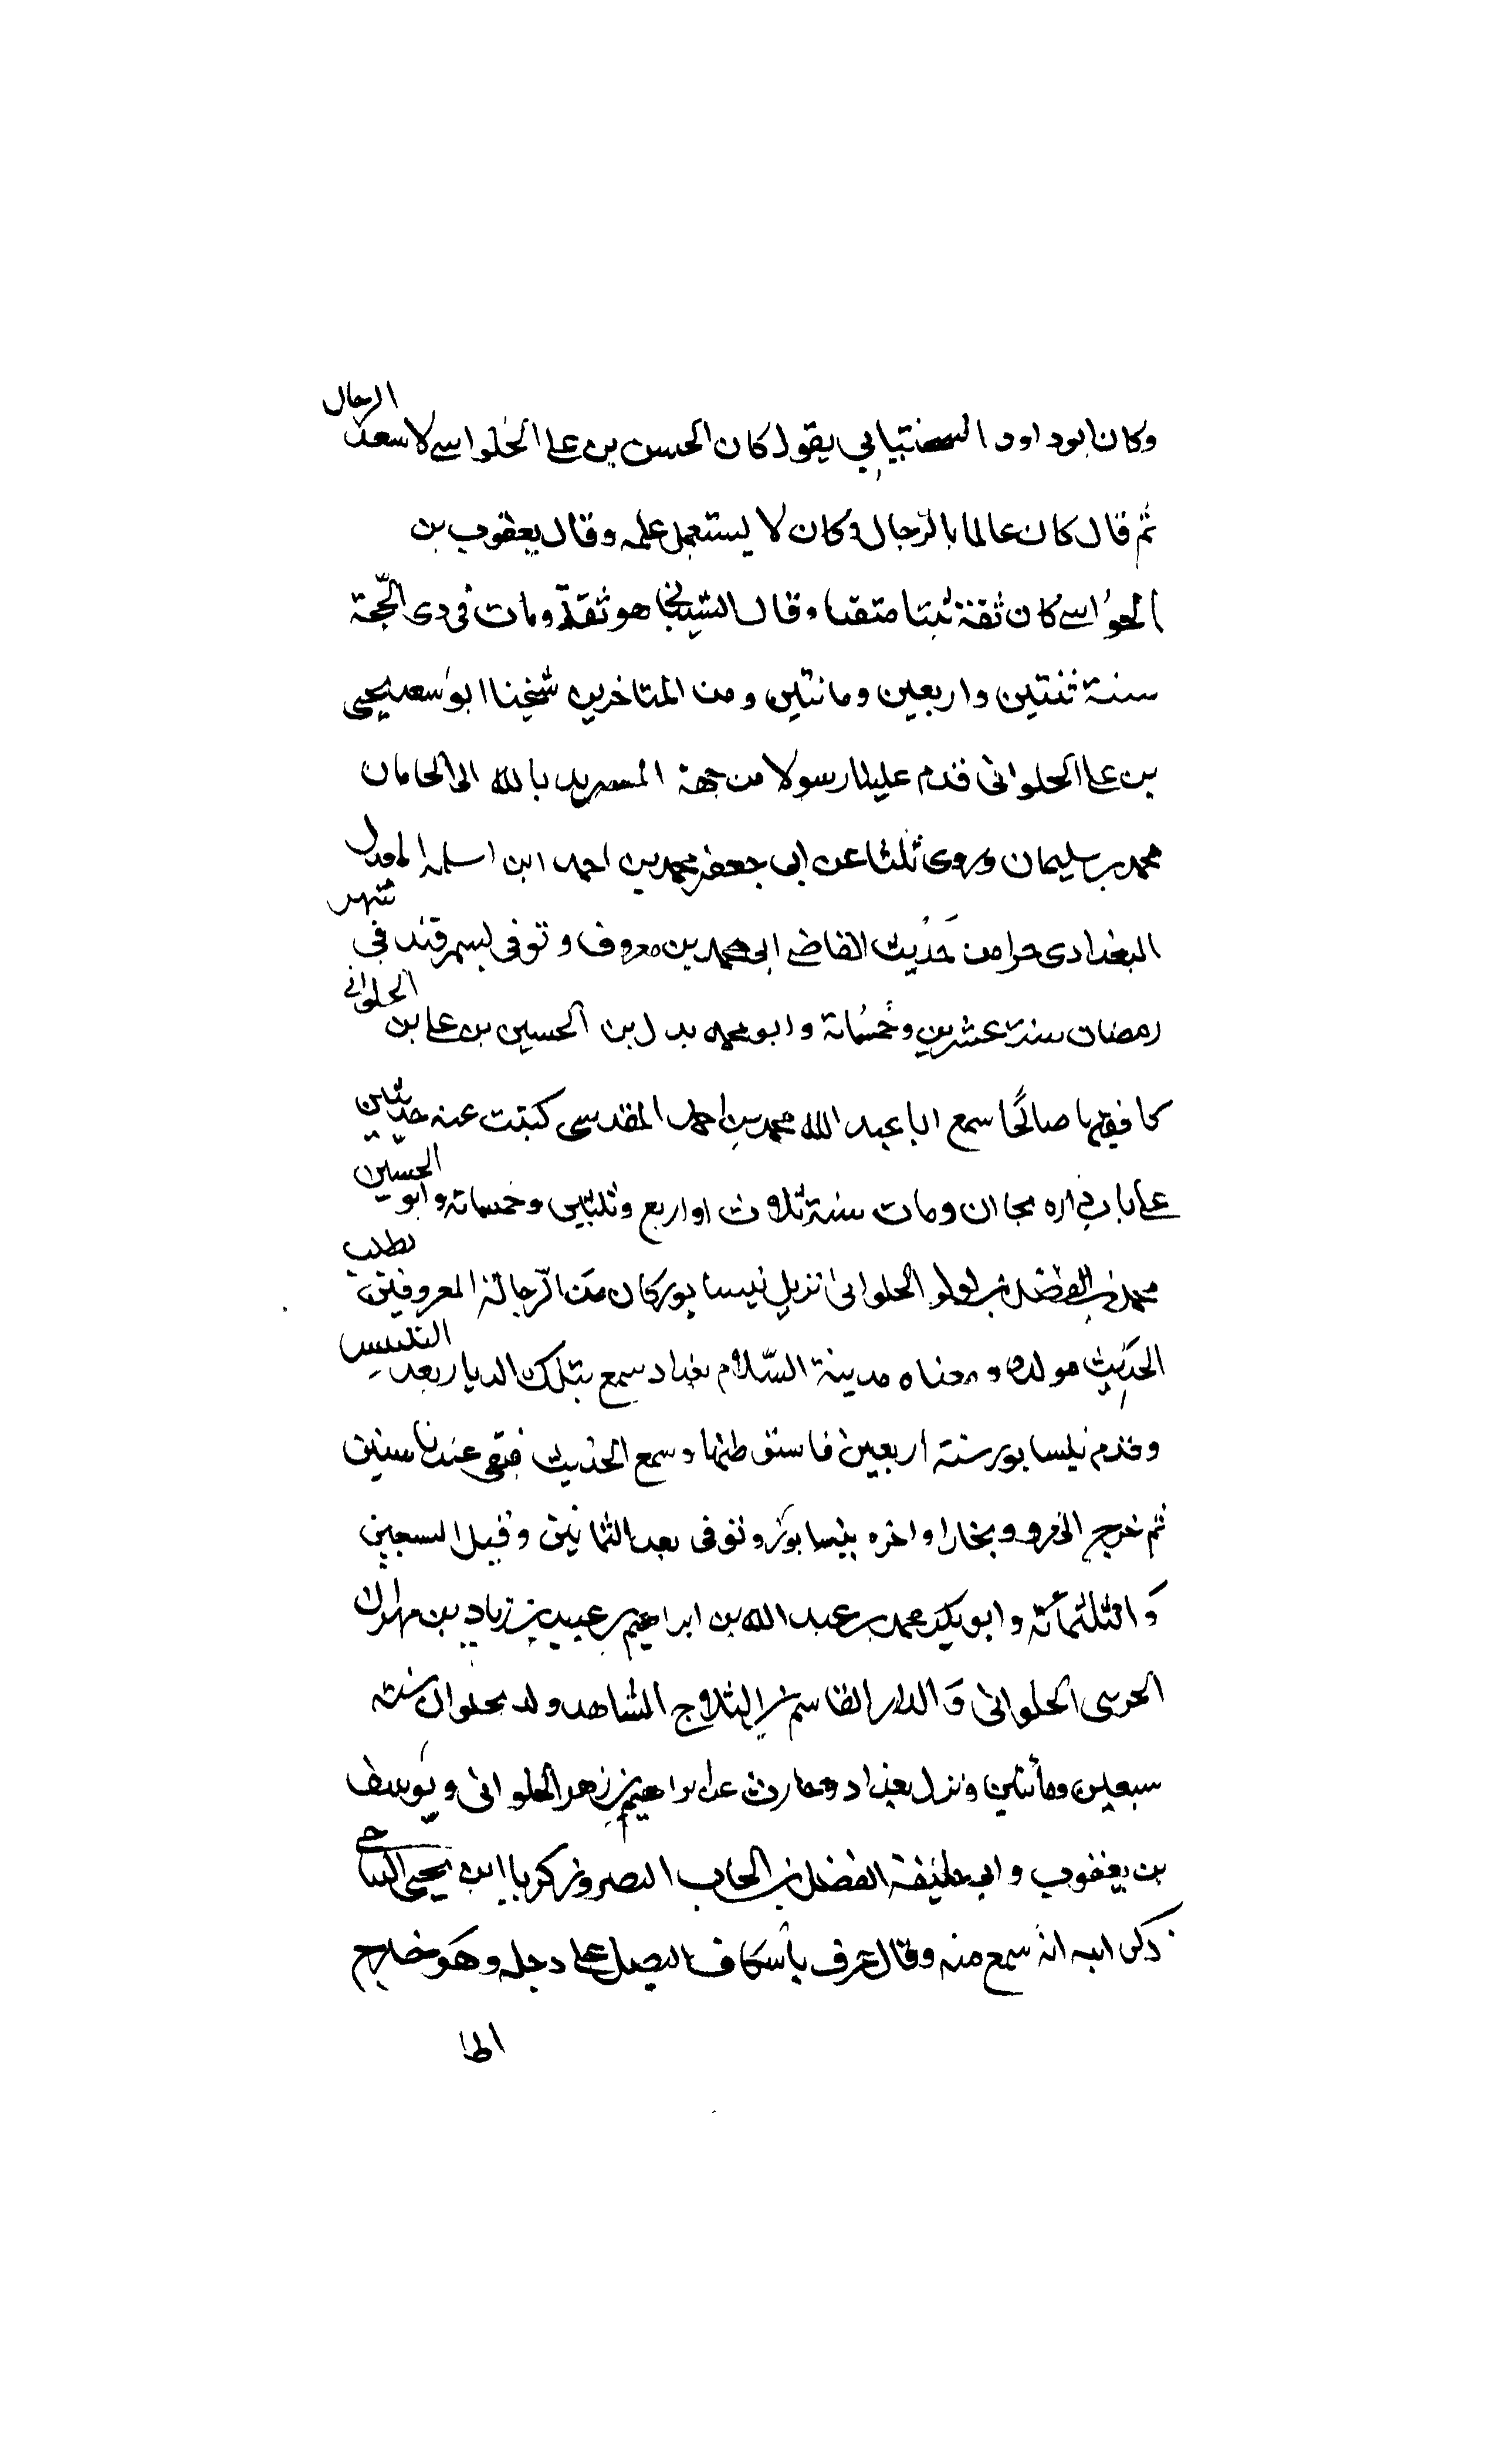 وكان ابو داود السختياني يقول كان الحسن بن على الحلواسے لا سعد الرجال
ثم قال كان عالما بالرجال وكان لا يستعمل علمه وقال يعقوب بن
كان ثقة ثبتا متقنا وقال هو ثقة ومات فى دى الحجة
سنة ثنتين واربعين ومائتين ومن المتاخرين شيخنا ابو سعد يحيى
بن على الحلوانى قدم علينا رسولا من جهة المسرسد بالله الى الحامان
محمد بن سليمان وروى ثلثا عن ابى جعفر محمد بن احمد ابن اسلمه
البغدادى من حديث القاضے ابى محمد بن معروف وتوفى بسمرقند فى شهر
رمضان سنة عشرين وخمسمائة وابو محمد بدل بن الحسين بن على بن الحلوانے
كا فقيها صالحا سمع ابا عبد الله محمد بن احمد المقدسى كتبت عنه حديثين
على باب داره بحا ان ومات سنة ثلاث او اربع وثلثين وخمسمائة وابو الحسين
محمد بن الفضل بن لولو الحلوانى نزيل نيسابور كان من الرجالة المعروفين بطلب
الحديث مولده و مدينة السلام بغداد سمع بتلك الديار بعد
وقدم نيسابور سنة اربعين وسمع الحديث فبقى عندنا سنين
ثم خرج الى مرو وبخارا واخره بنيسابور وتوفى بعد الثمانين وقبل السبعين
والثلثمائة وابو بكر محمد بن عبد الله بن ابراهيم بن عبيد بن زياد بن مهران
الحرسى الحلوانى والد ابى القاسم بن الثلاج الشاهد ولد بحلوان سنة
سبعين ومائتين ونزل بغداد وحدث عن ابراهيم بن زهير الحلوانى ويوسف
بن يعقوب وابى خليفة الفضل بن الحباب البصر وزكريا ابن يحيى الساجى
ذكر ابنه انه سمع منه وقال عرف باسكاف دجله وهو خارج
الطا